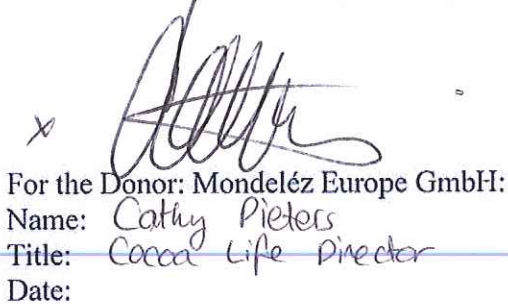 x
For the Donor: Mondeléz Europe GmbH:
Name: Cathy Pieters
Title: Cocoa Life Director
Date: